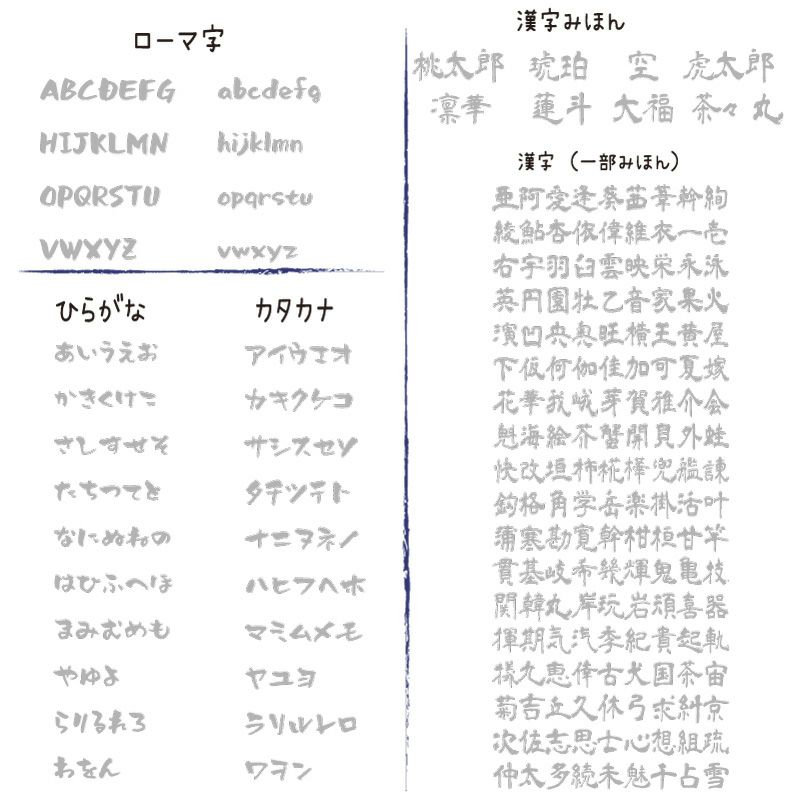 ローマ字
ABCDEFG abcdefg
HIJKLMN hijklmn
OPQRSTU opqrstu
VWXYZ vwxyz
ひらがな カタカナ
あいうえお アイウエオ
かきくけこ カキクケコ
さしすせそ サシスセソ
たちつてと タチツテト
なにぬねの ナニヌネノ
はひふへほ ハヒフヘホ
まみむめも マミムメモ
やゆよ ヤユヨ
らりるれろ ラリルレロ
わをん ワヲン
漢字みほん
桃太郎 琥珀 空 虎太郎
凛華 蓮斗 大福 茶々丸
漢字（一部みほん）
亜阿愛逢葵茜葦幹絢
綾鮎杏依偉維衣一壱
右宇羽臼雲映栄永泳
英円園牡乙音家果火
濱凹央奥旺横王黄屋
下仮何伽佳加可夏嫁
花華我峨芽賀雅介会
魁海絵芥蟹開貝外蛙
快改垣柿椛樺兜艦諌
鈎格角学岳楽掛活叶
蒲寒勘寛幹柑桓甘竿
貫基岐希幾輝鬼亀技
関韓丸岸玩岩頑喜器
揮期気汽季紀貴起軌
犠九恵倖古犬国茶宙
菊吉丘久休弓求糾京
次佐志思士心想組疏
仲太多続未魅千占雪